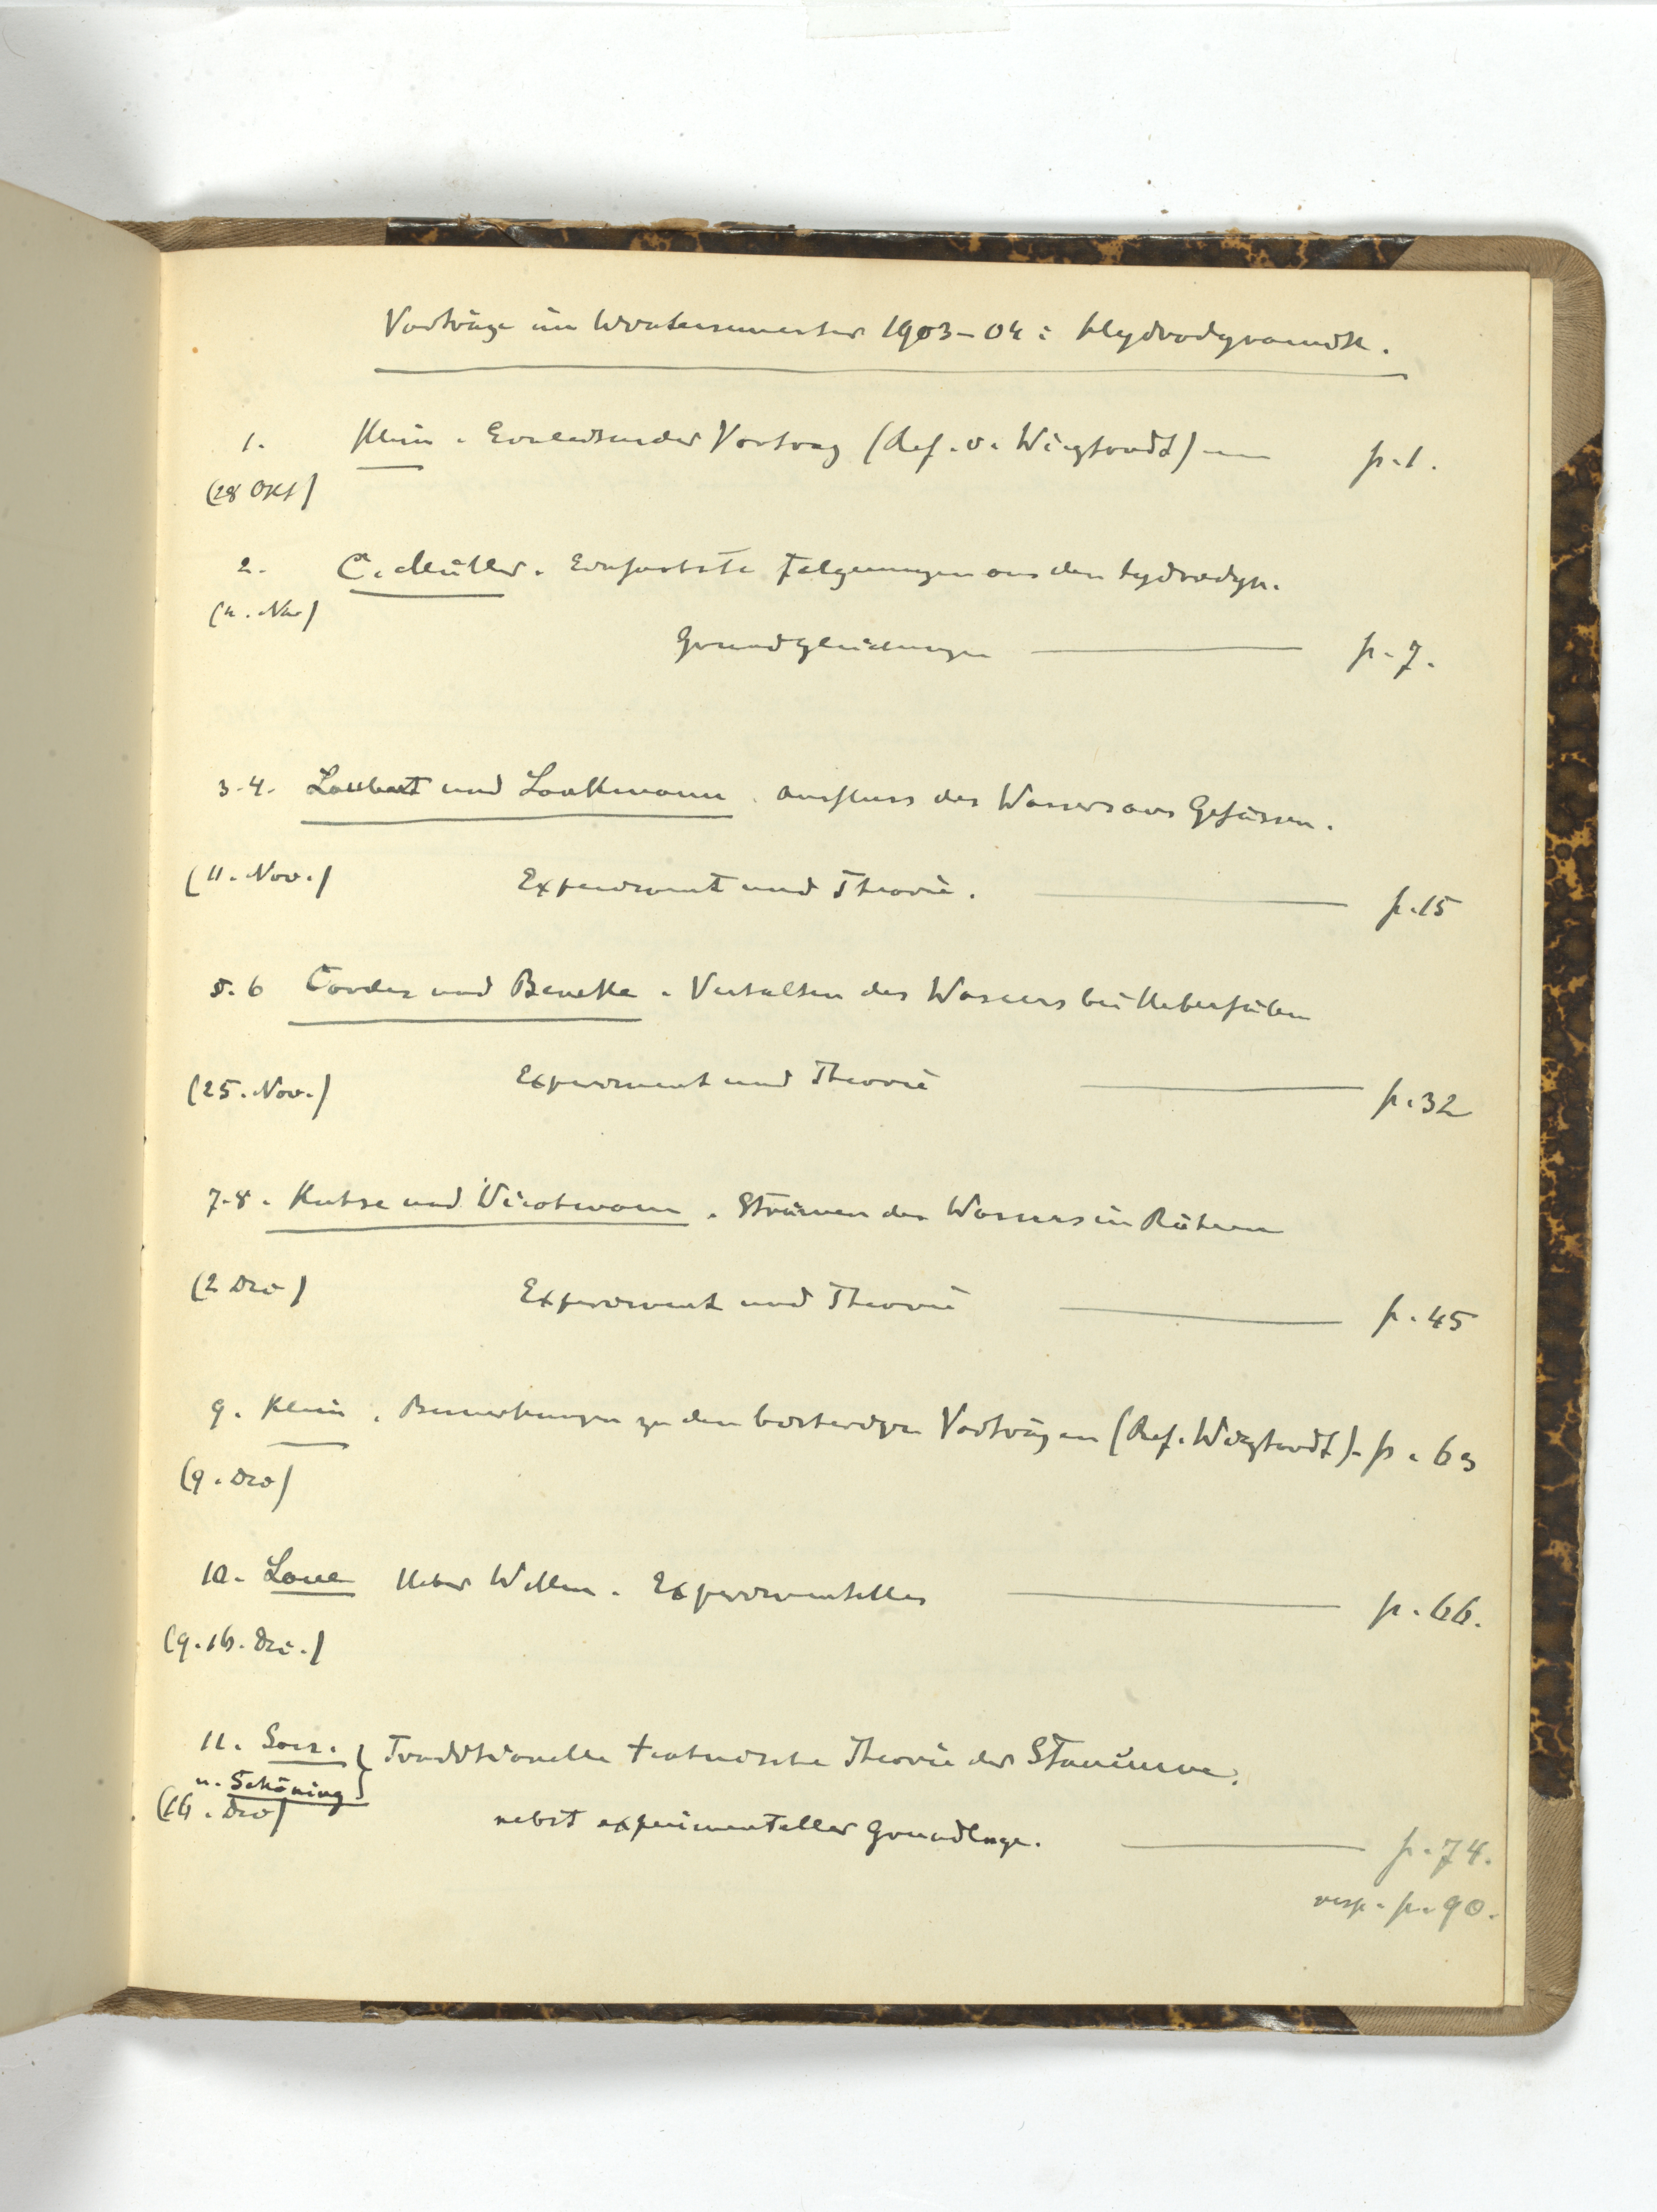 Vorträge im Wintersemester 1903–04: Hydrodynamik.
1. Klein. Einleitender Vortrag (Ref. v. Wieghardt) — p. 1.
(28 Okt)
2. C. Müller. Einfachste Folgerungen aus den hydrodyn.
(4. Nov)
Grundgleichungen — p. 7.
3-4. und . Ausfluss des Wassers aus Gefässen.
(11. Nov.) Experiment und Theorie. — p. 15
5.6 Cordes und Beneke. Verhalten des Wassers bei Ueberfällen
(25. Nov.) Experiment und Theorie — p. 32
7-8. und . Strömen des Wassers in Röhren
(2 Dec) Experiment und Theorie — p. 45
9. Klein. Bemerkungen zu den bisherigen Vorträgen (Ref. Wieghardt) - p. 63
(9. Dec)
10. Ueber Wellen. Experimentelles — p. 66.
(9. 16. Dec.)
11. Traditionelle technische Theorie der
u. Schöning
(16. Dec) nebst experimenteller Grundlage. — p. 74.
resp. p. 90.